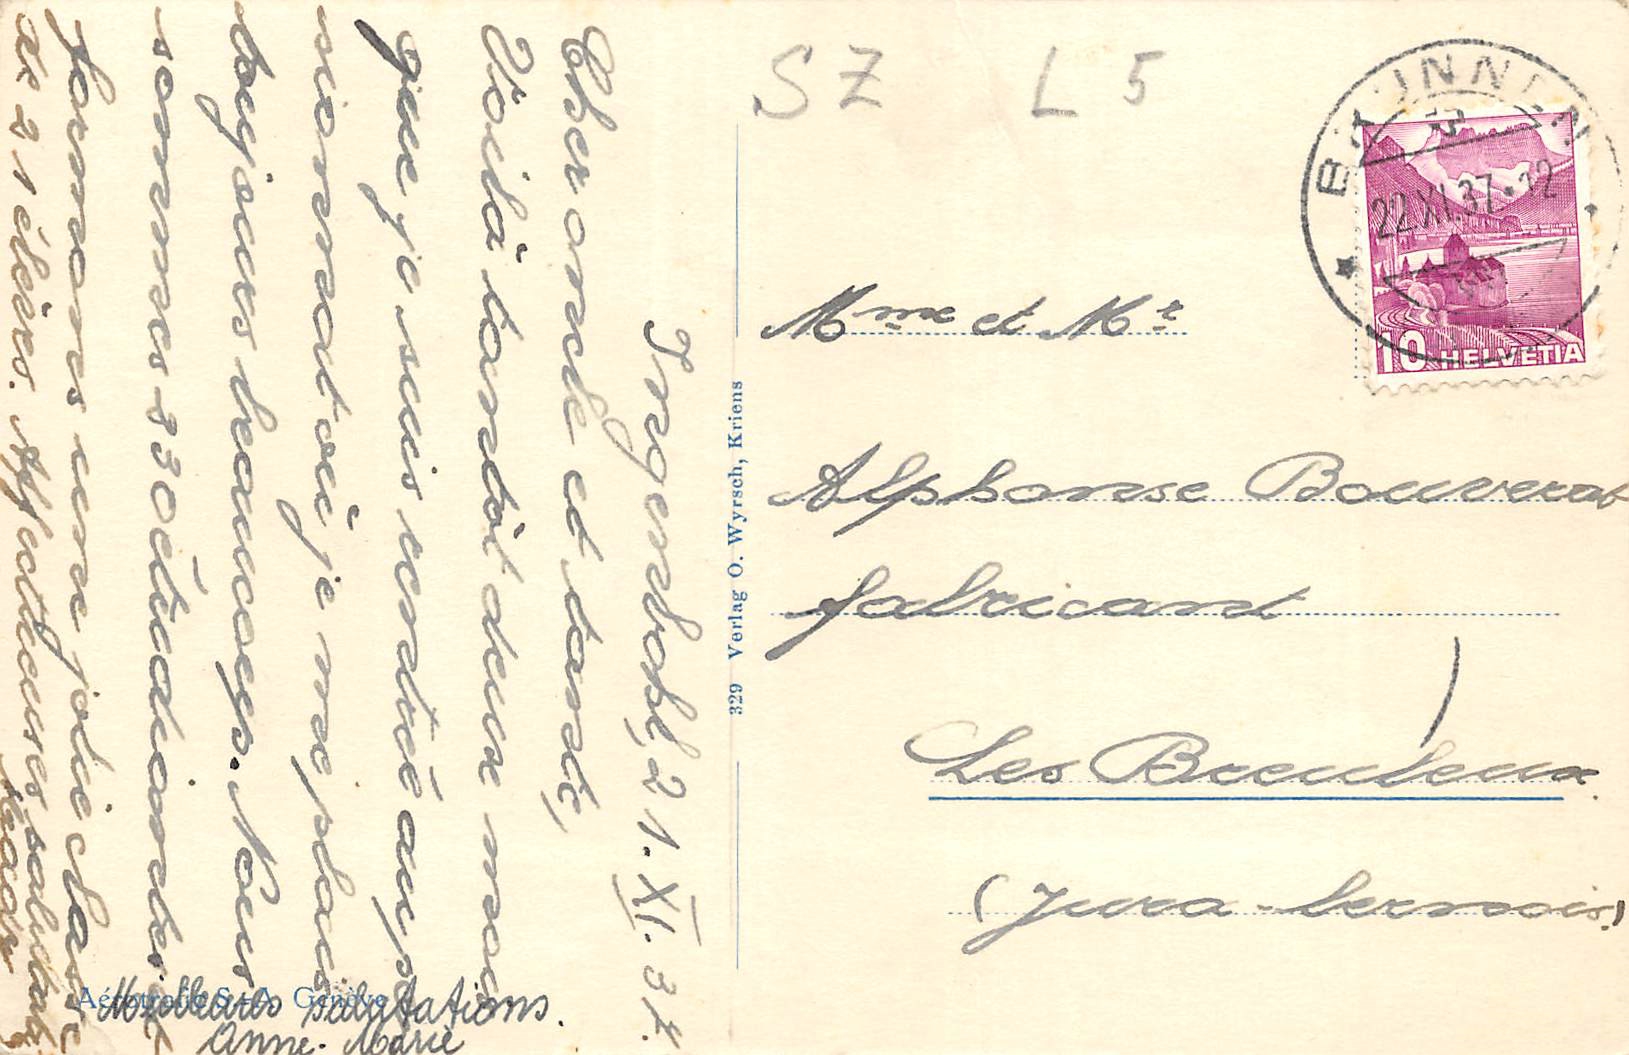 SZ L5
BRUNNEN
22.XI.37.-12
10 HELVETIA
Mme et Mr
Alphonse Bouverat
fabricant
Les Breuleux.
(Jura-bernois)
329 Verlag O. Wyrsch, Kriens
Ingenbohl, 21. XI. 37.
Cher oncle et tante,
Voilà tantôt deux mois
que je suis rentrée au pen
sionnat où je me plais
toujours beaucoup. Nous
sommes 230 étudiantes et
formons une jolie classe
de 21 élèves. Affectueuses salutations
Aérotrafic S.-A. Genève
Meilleures salutations.
Anne-Marie